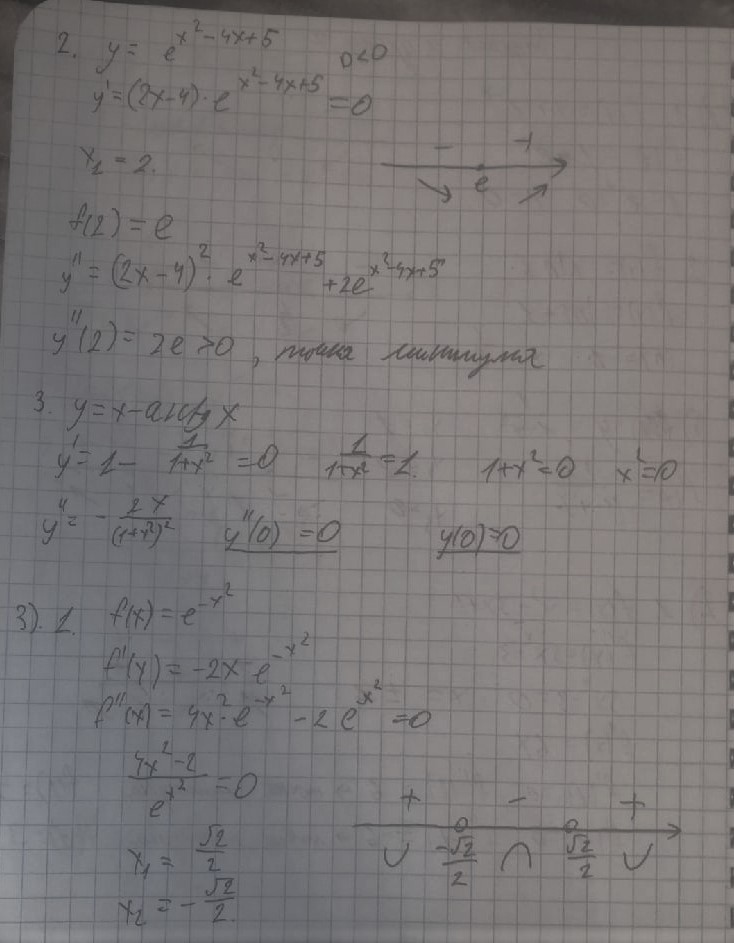 2. y = e^{x²-4x+5} D<0
y' = (2x-4)·e^{x²-4x+5} = 0
x₁ = 2.
- +
e
f(2) = e
y'' = (2x-4)²·e^{x²-4x+5} + 2e^{x²-4x+5}
y''(2) = 2e > 0, точка минимума
3. y = x - arctg x
y' = 1 - 1/(1+x²) = 0 1/(1+x²) = 1. 1+x² = 0 x² = 0
y'' = - 2x/(1+x²)² y''(0) = 0 y(0) = 0
3). 1. f(x) = e^{-x²}
f'(x) = -2x e^{-x²}
f''(x) = 4x²·e^{-x²} - 2e^{x²} = 0
(4x²-2)/e^{x²} = 0
+ - +
x₁ = √2/2 ∪ -√2/2 ∩ √2/2 ∪
x₂ = -√2/2.